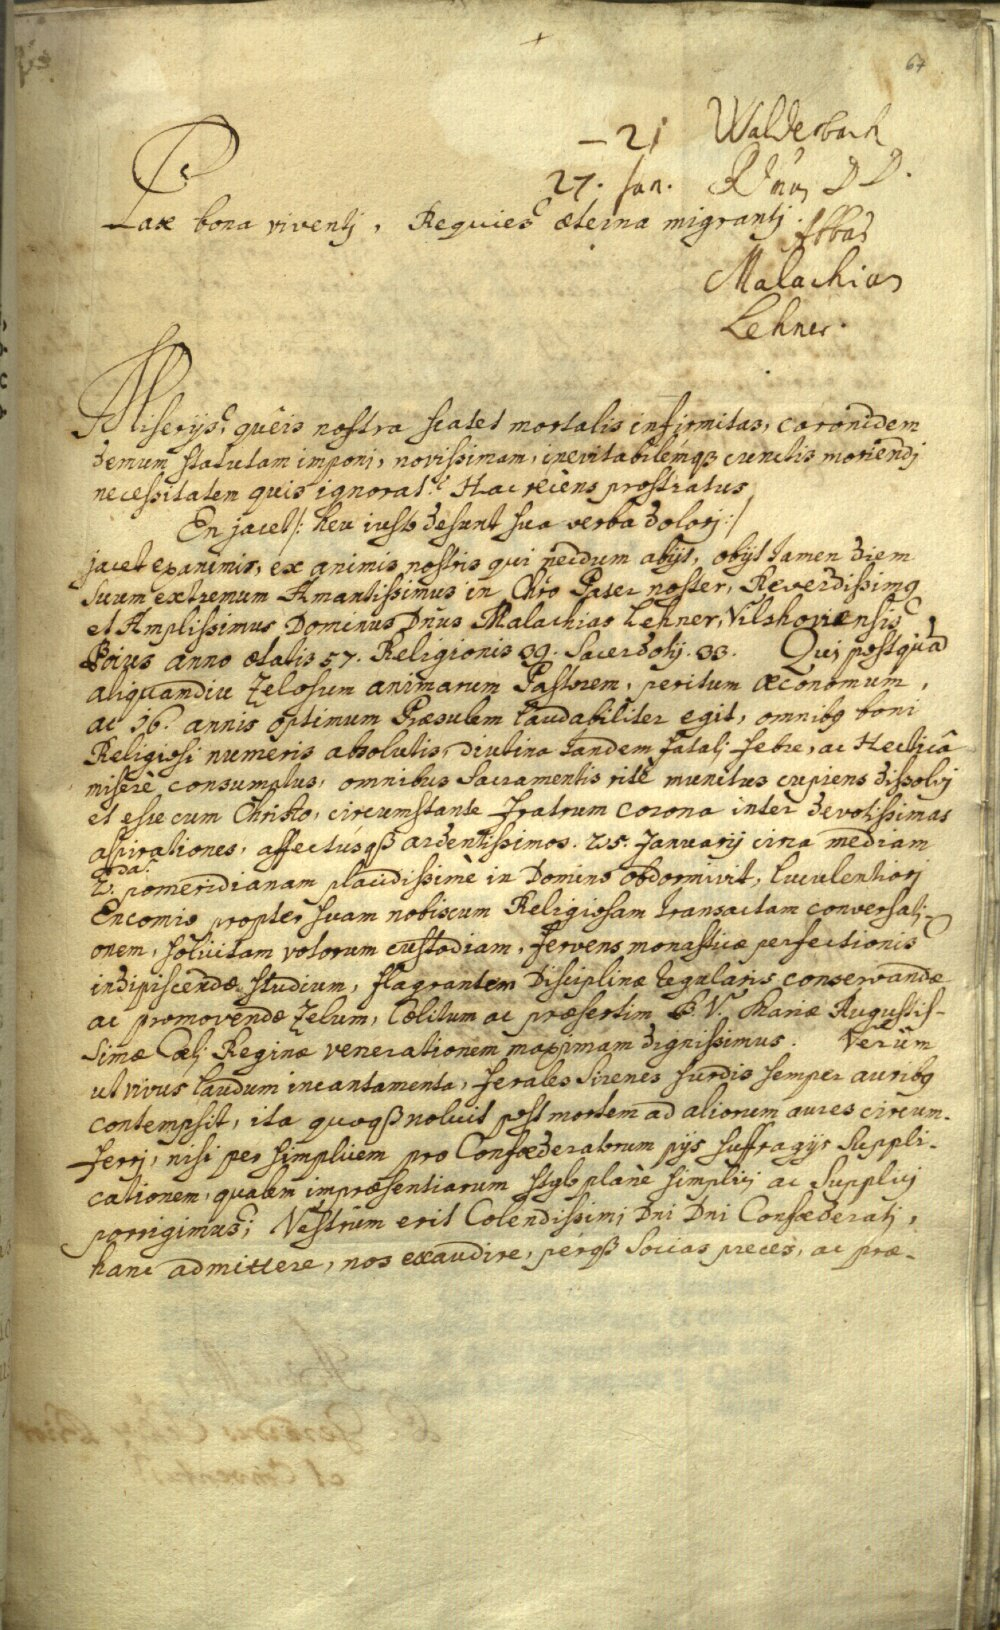 67
— 21 Walderbach
27. Jan. R. D. D.
Pax bona viventj, Requies æterna migrantj.
Abbas
Malachias
Lehner.
Miserijs, quêis nostra scatet mortalis infirmitas, coronidem
demum statutam imponj, novissimam, inevitabilémqȝ cunctis moriendj
necessitatem quis ignorat? Hac recèns prostratus
En jacet /: heu iusto desunt sua verba dolorj :/
jacet exanimis, ex animis nostris qui necdum abijt, obijt tamen diem
suum extremum Amantissimus in Chro Pater noster, Reverdissimq
et Amplissimus Dominus Dnus Malachias Lehner, Vilshoviensis
Boius anno ætatis 57. Religionis 39. Sacerdotij. 33. Qui postquã
aliquandiu Zelosum animarum Pastorem, peritum œconomum,
ac 16. annis optimum Præsulem laudabiliter egit, omnibq boni
Religiosi numeris absolutis, diutina tandem fatalj febre, ac Hecticâ
miserè consumptus, omnibus Sacramentis ritè munitus cupiens dissolvj
et esse cum Christo, circumstante fratrum corona inter devotissimas
aspirationes, affectúsqȝ ardentissimos. 25. Januarij circa mediam
2.da pomeridianam placidissimè in Domino obdormivit, luculentiorj
Encomio propter suam nobiscum Religiosam transactam conversati-
onem, solicitam votorum custodiam, fervens monasticæ perfectionis
indipiscendæ studium, flagrantem Disciplinæ regularis conservandæ
ac promovendæ Zelum, Cœlitum ac præsertim B. V. Mariæ Augustis-
simæ Cœlj Reginæ venerationem maximam dignissimus. Verùm
ut vivus laudum incantamenta, ferales Sirenes surdis semper auribq
contempsit, ita quoqȝ noluit post mortem ad aliorum aures circum-
ferrj, nisi per simplicem pro Confœderatorum pijs suffragijs suppli-
cationem, qualem impræsentiarum stylo planè simplicj ac supplicj
porrigimus; Vestrûm erit Colendissimj Dni Dni Confœderatj,
hanc admittere, nos exaudire, pérqȝ socias preces, ac præ-